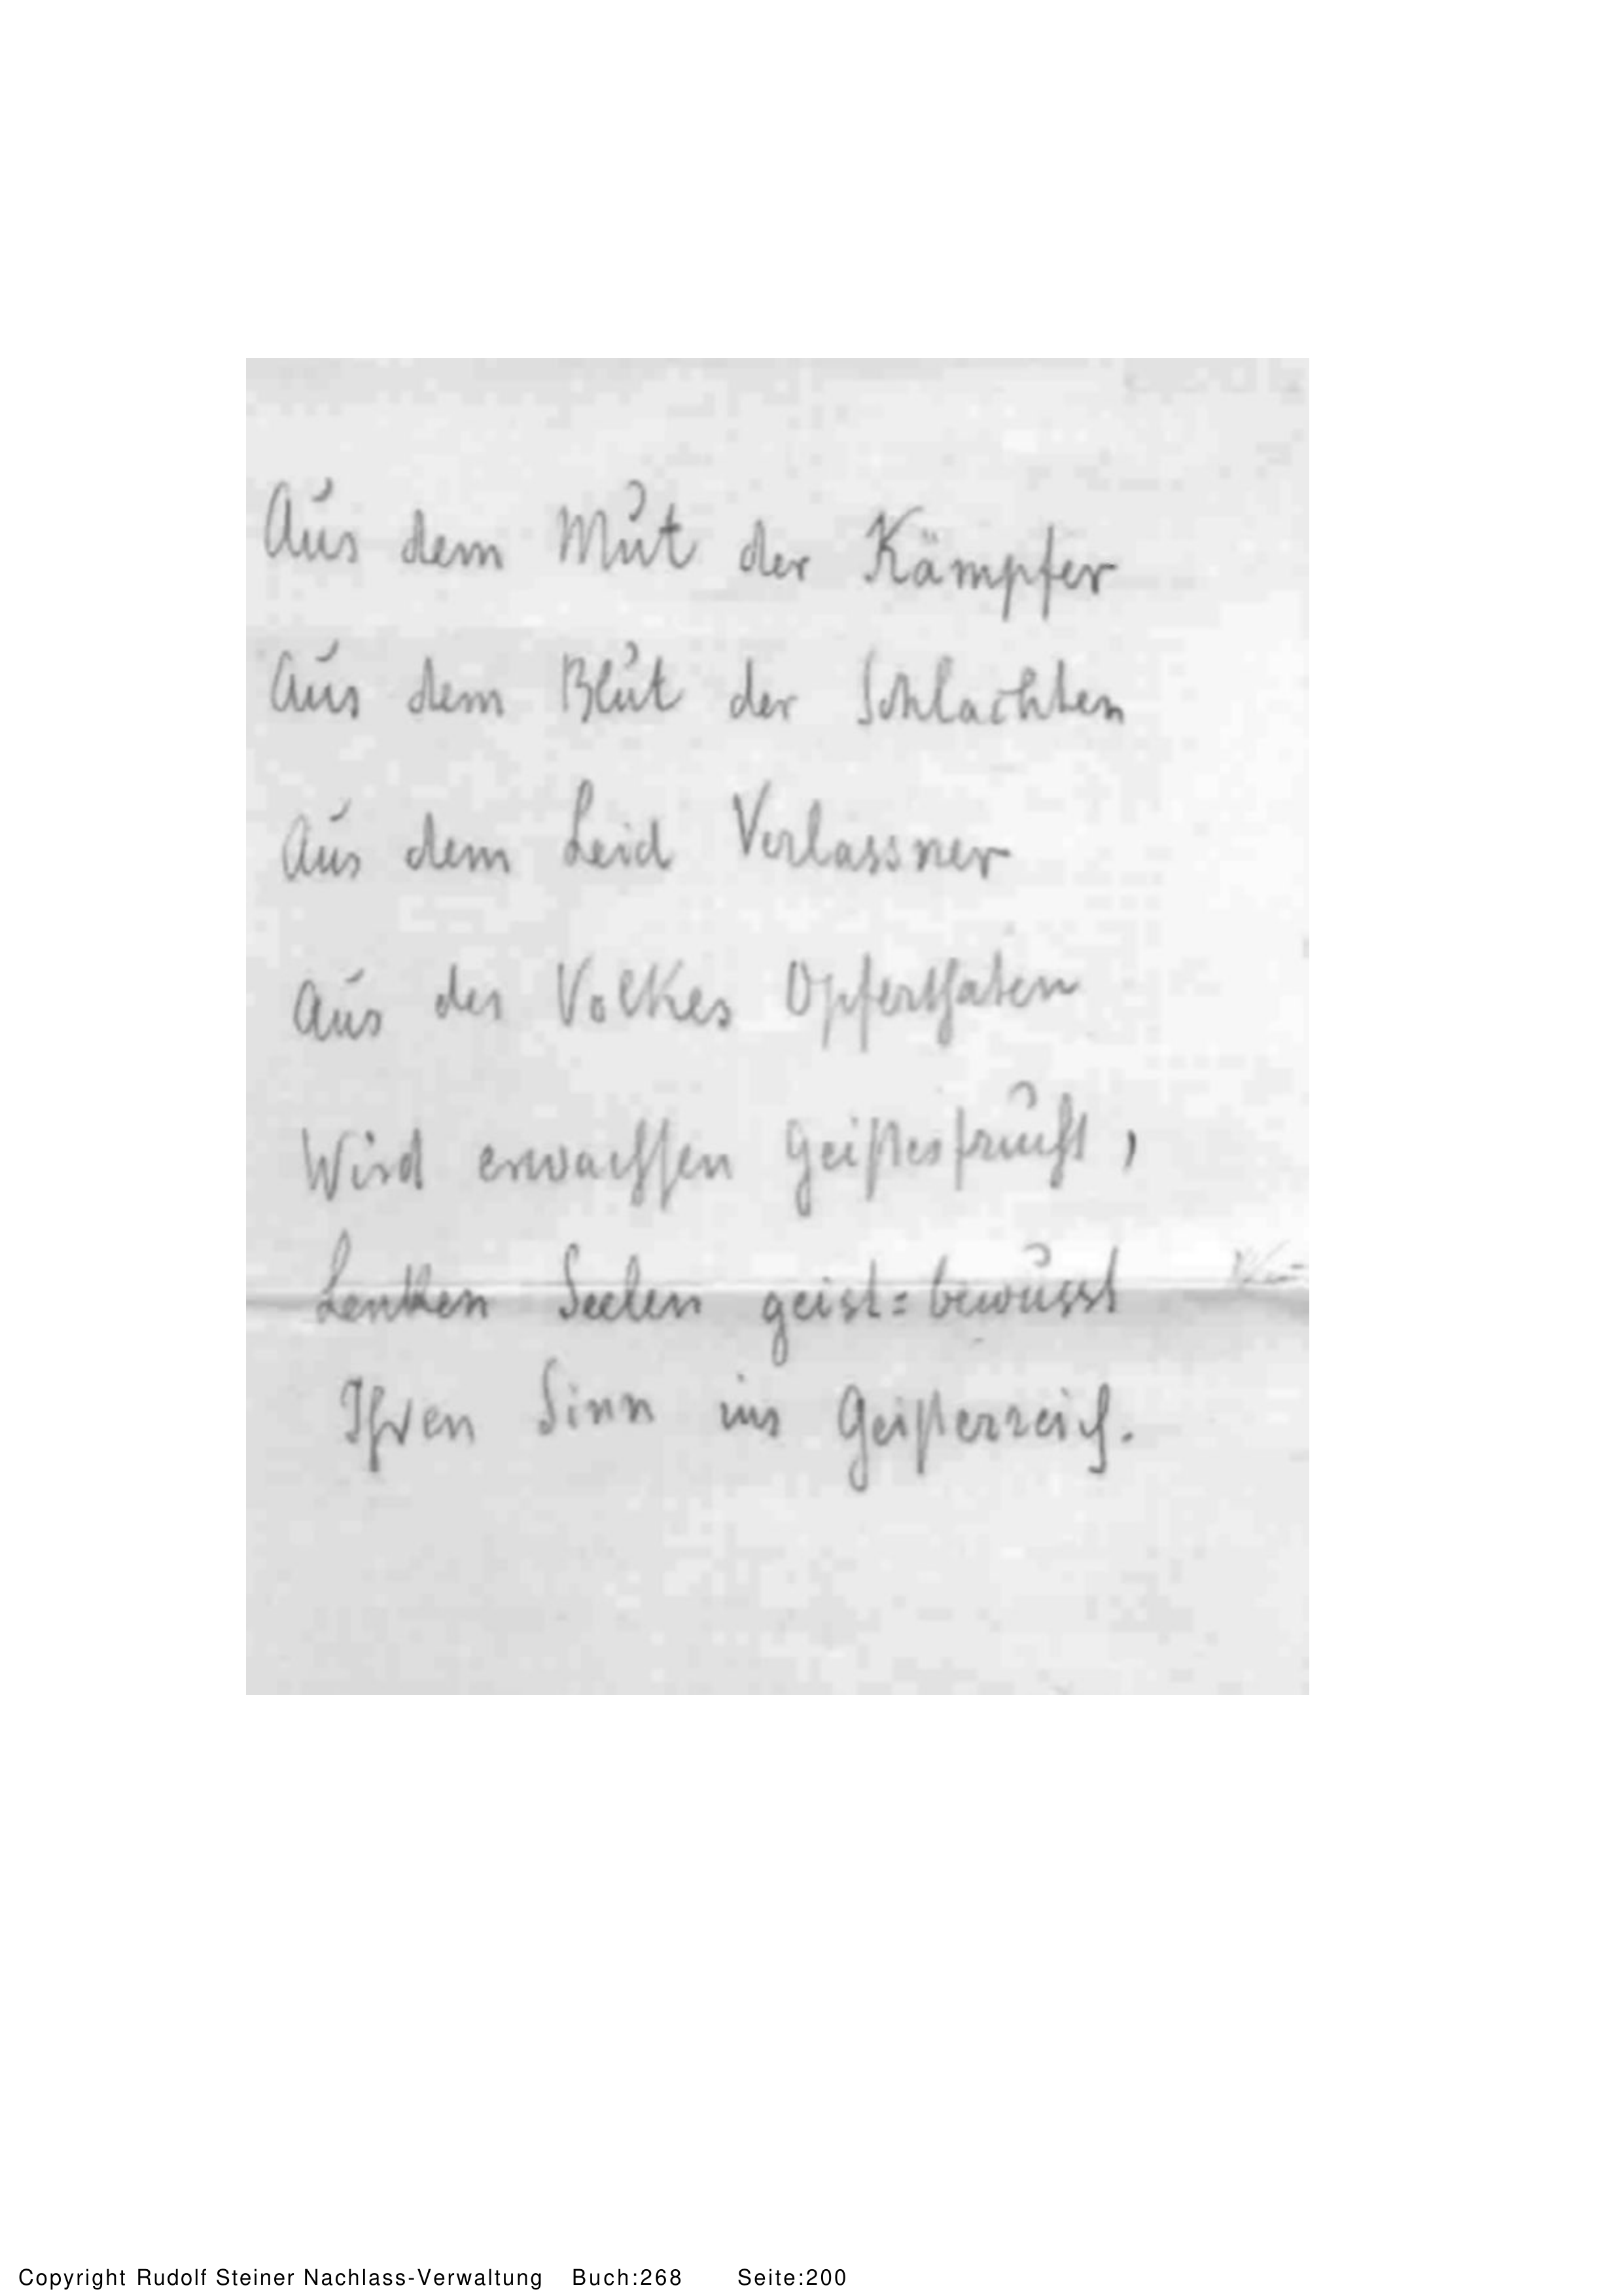 Aus dem Mut der Kämpfer
Aus dem Blut der Schlachten
Aus dem Leid Verlassner
Aus des Volkes Opferthaten
Wird erwachsen Geistesfrucht,
Lenken Seelen geist=bewusst
Ihren Sinn ins Geisterreich.
Copyright Rudolf Steiner Nachlass-Verwaltung Buch:268 Seite:200